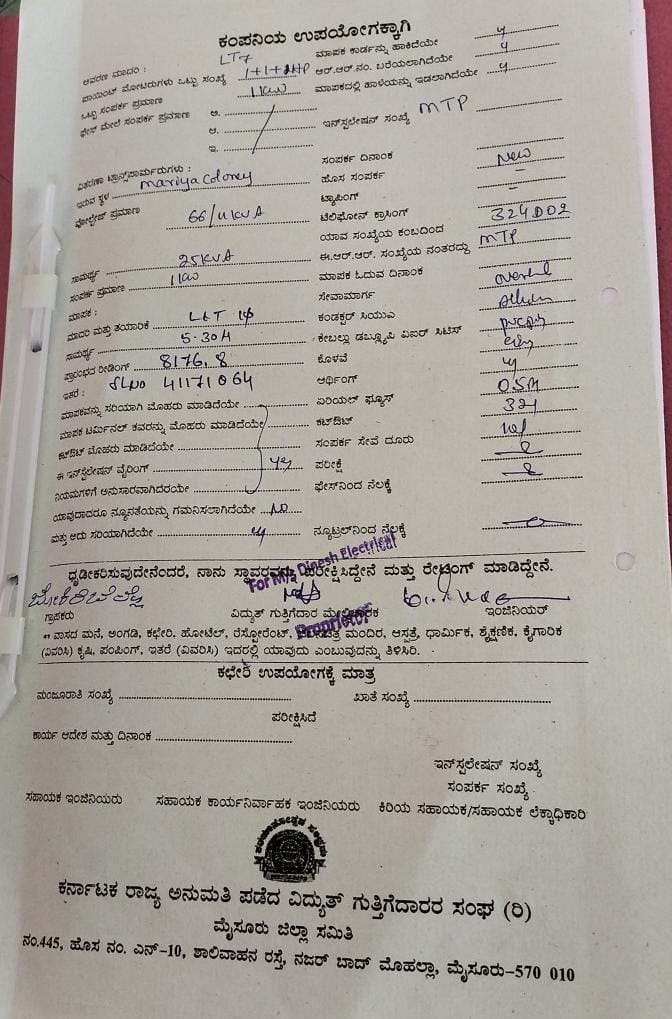 ಕಂಪನಿಯ ಉಪಯೋಗಕ್ಕಾಗಿ
ಆವರಣ ಮಾದರಿ : LT7 ಮಾಪಕ ಕಾರ್ಡನ್ನು ಹಾಕಿದೆಯೇ
ಪಾಯಿಂಟ್ ಮೋಟರುಗಳು ಒಟ್ಟು ಸಂಖ್ಯೆ 1+1+ ಆರ್.ಆರ್.ನಂ. ಬರೆಯಲಾಗಿದೆಯೇ
ಒಟ್ಟು ಸಂಪರ್ಕ ಪ್ರಮಾಣ 1KW ಮಾಪಕದಲ್ಲಿ ಹಾಳೆಯನ್ನು ಇಡಲಾಗಿದೆಯೇ
ಫೇಸ್ ಮೇಲೆ ಸಂಪರ್ಕ ಪ್ರಮಾಣ ಅ.
ಆ. ಇನ್ಸ್ಟಲೇಷನ್ ಸಂಖ್ಯೆ MTP
ಇ.
ವಿತರಣಾ ಟ್ರಾನ್ಸ್‌ಫಾರ್ಮರುಗಳು : ಸಂಪರ್ಕ ದಿನಾಂಕ
ಇರುವ ಸ್ಥಳ Mariya Coloney ಹೊಸ ಸಂಪರ್ಕ New
ಟ್ಯಾಪಿಂಗ್ –
ವೋಲ್ಟೇಜ್ ಪ್ರಮಾಣ 66/11KVA ಟೆಲಿಫೋನ್ ಕ್ರಾಸಿಂಗ್ –
ಯಾವ ಸಂಖ್ಯೆಯ ಕಂಬದಿಂದ 324002
ಸಾಮರ್ಥ್ಯ 25KVA ಈ.ಆರ್.ಆರ್. ಸಂಖ್ಯೆಯ ನಂತರದ್ದು MTP
ಸಂಪರ್ಕ ಪ್ರಮಾಣ 1KW ಮಾಪಕ ಓದುವ ದಿನಾಂಕ
ಮಾಪಕ : ಸೇವಾಮಾರ್ಗ
ಮಾದರಿ ಮತ್ತು ತಯಾರಿಕೆ L&T 1φ ಕಂಡಕ್ಟರ್ ಸಿಯುಎ
ಸಾಮರ್ಥ್ಯ 5-30A ಕೇಬಲ್ಲು ಡಬ್ಲ್ಯೂಪಿ ವಿಐರ್ ಸಿಟಿಸ್
ಪ್ರಾರಂಭದ ರೀಡಿಂಗ್ 8176.8 ಕೊಳವೆ
ಇತರೆ : SLNO 41171064 ಅರ್ಥಿಂಗ್
ಮಾಪಕವನ್ನು ಸರಿಯಾಗಿ ಮೊಹರು ಮಾಡಿದೆಯೇ ಏರಿಯಲ್ ಫ್ಯೂಸ್
ಮಾಪಕ ಟರ್ಮಿನಲ್ ಕವರನ್ನು ಮೊಹರು ಮಾಡಿದೆಯೇ ಕಟ್‌ಔಟ್
ಕಟ್‌ಔಟ್ ಮೊಹರು ಮಾಡಿದೆಯೇ ಸಂಪರ್ಕ ಸೇವೆ ದೂರು
ಈ ಇನ್ಸ್ಟಲೇಷನ್ ವೈರಿಂಗ್ ಪರೀಕ್ಷೆ
ನಿಯಮಗಳಿಗೆ ಅನುಸಾರವಾಗಿದೆಯೇ ಫೇಸ್‌ನಿಂದ ನೆಲಕ್ಕೆ
ಯಾವುದಾದರೂ ನ್ಯೂನತೆಯನ್ನು ಗಮನಿಸಲಾಗಿದೆಯೇ NO
ಮತ್ತು ಅದು ಸರಿಯಾಗಿದೆಯೇ ನ್ಯೂಟ್ರಲ್‌ನಿಂದ ನೆಲಕ್ಕೆ
ಧೃಡೀಕರಿಸುವುದೇನೆಂದರೆ, ನಾನು ಸ್ಥಾವರವನ್ನು ಪರೀಕ್ಷಿಸಿದ್ದೇನೆ ಮತ್ತು ರೇಟಿಂಗ್ ಮಾಡಿದ್ದೇನೆ.
For M/s Dinesh Electrical
Proprietor
ಗ್ರಾಹಕರು ವಿದ್ಯುತ್ ಗುತ್ತಿಗೆದಾರ ಮೇಲ್ವಿಚಾರಕ ಇಂಜಿನಿಯರ್
ವಾಸದ ಮನೆ, ಅಂಗಡಿ, ಕಛೇರಿ, ಹೋಟೆಲ್, ರೆಸ್ಟೋರೆಂಟ್, ಮಂದಿರ, ಆಸ್ಪತ್ರೆ, ಧಾರ್ಮಿಕ, ಶೈಕ್ಷಣಿಕ, ಕೈಗಾರಿಕ
(ವಿವರಿಸಿ) ಕೃಷಿ, ಪಂಪಿಂಗ್, ಇತರೆ (ವಿವರಿಸಿ) ಇದರಲ್ಲಿ ಯಾವುದು ಎಂಬುವುದನ್ನು ತಿಳಿಸಿರಿ.
ಕಛೇರಿ ಉಪಯೋಗಕ್ಕೆ ಮಾತ್ರ
ಮಂಜೂರಾತಿ ಸಂಖ್ಯೆ ಖಾತೆ ಸಂಖ್ಯೆ
ಪರೀಕ್ಷಿಸಿದೆ
ಕಾರ್ಯ ಆದೇಶ ಮತ್ತು ದಿನಾಂಕ
ಇನ್ಸ್ಟಲೇಷನ್ ಸಂಖ್ಯೆ
ಸಂಪರ್ಕ ಸಂಖ್ಯೆ
ಸಹಾಯಕ ಇಂಜಿನಿಯರು ಸಹಾಯಕ ಕಾರ್ಯನಿರ್ವಾಹಕ ಇಂಜಿನಿಯರು ಕಿರಿಯ ಸಹಾಯಕ/ಸಹಾಯಕ ಲೆಕ್ಕಾಧಿಕಾರಿ
ಕರ್ನಾಟಕ ರಾಜ್ಯ ಅನುಮತಿ ಪಡೆದ ವಿದ್ಯುತ್ ಗುತ್ತಿಗೆದಾರರ ಸಂಘ (ರಿ)
ಮೈಸೂರು ಜಿಲ್ಲಾ ಸಮಿತಿ
ನಂ.445, ಹೊಸ ನಂ. ಎನ್-10, ಶಾಲಿವಾಹನ ರಸ್ತೆ, ನಜರ್ ಬಾದ್ ಮೊಹಲ್ಲಾ, ಮೈಸೂರು-570 010